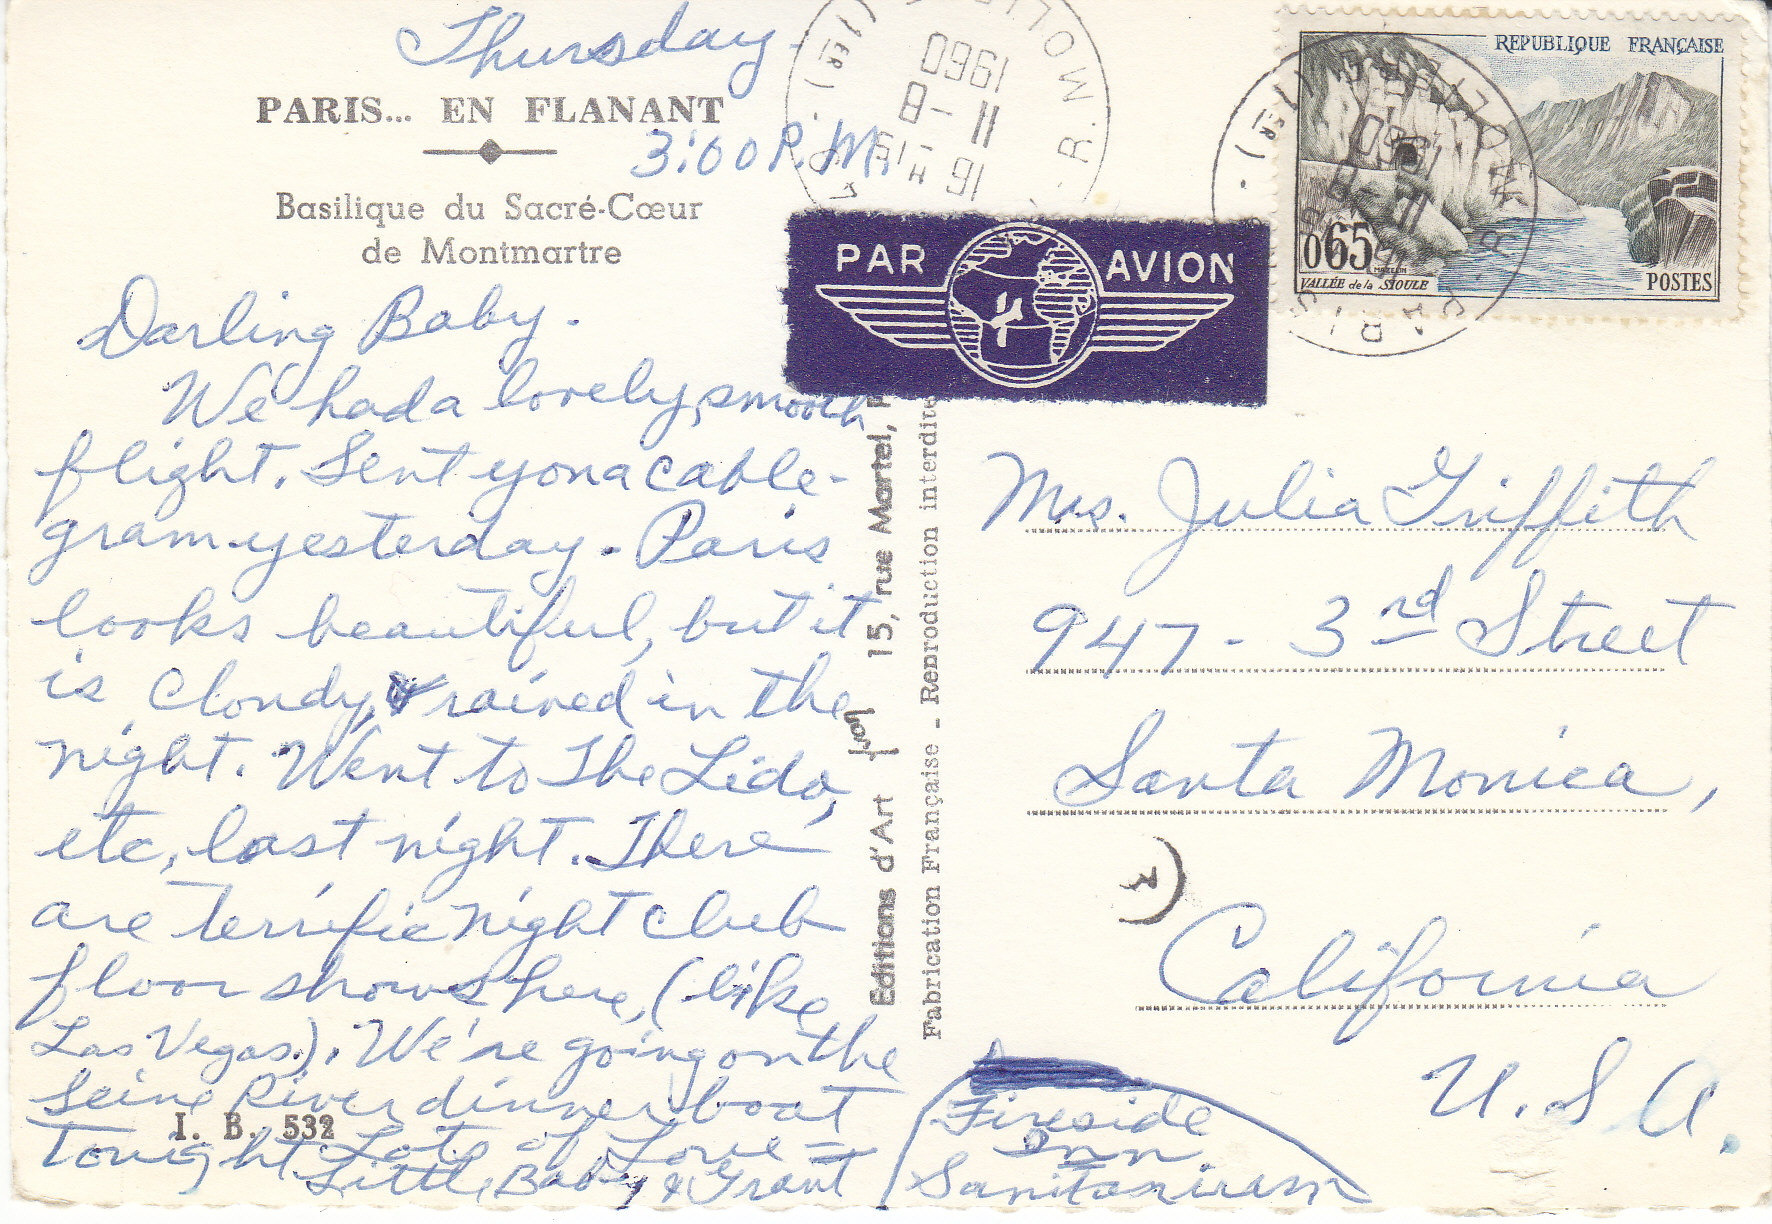 Thursday -
PARIS... EN FLANANT
3:00 P.M.
Basilique du Sacré-Cœur
de Montmartre
Darling Baby.
We had a lovely, smooth
flight. Sent you a cable-
gram yesterday. Paris
looks beautiful, but it
is cloudy, & rained in the
night. Went to The Lido,
etc, last night. There
are terrific night club
floor shows here, (like
Las Vegas). We're going on the
Seine River dinner boat
tonight Lots of Love =
Little Baby & Grant
I. B. 532
Editions d'Art Yvon 15, rue Martel,
Fabrication Française - Reproduction interdite
1960
11 - 8
16 H 15
R. MOLI
(1ER)
PAR AVION
REPUBLIQUE FRANÇAISE
0,65
MAZELIN
VALLÉE de la SIOULE
POSTES
1960
11 - 8
PARIS
(1ER)
Mrs. Julia Griffith
947 - 3rd Street
Santa Monica,
California
U.S.A.
Fireside
Inn
Sanitarium